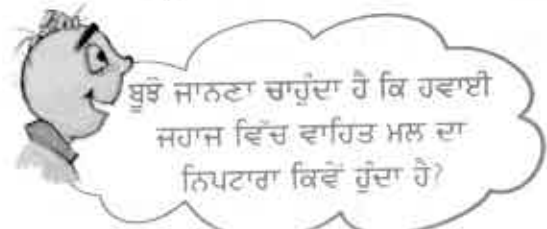 ਬੂਝੋ ਜਾਨਣਾ ਚਾਹੁੰਦਾ ਹੈ ਕਿ ਹਵਾਈ
ਜਹਾਜ ਵਿੱਚ ਵਾਹਿਤ ਮਲ ਦਾ
ਨਿਪਟਾਰਾ ਕਿਵੇਂ ਹੁੰਦਾ ਹੈ?